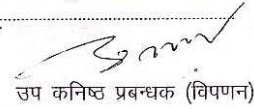 उप कनिष्ठ प्रबन्धक (विपणन)